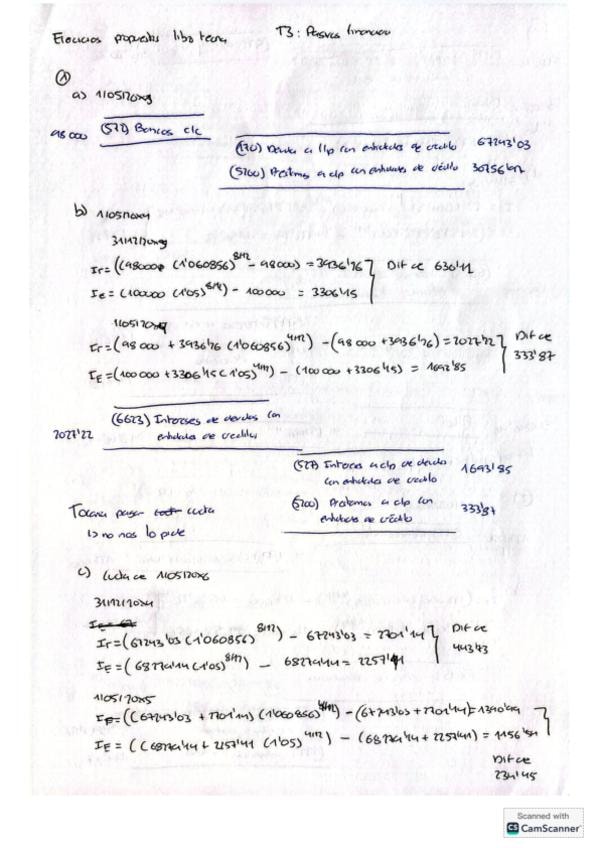 Ejercicios propuestos libro teoría T3: Pasivos financieros
①
a) 1/05/20x3
98000 (572) Bancos c/c
(170) Deuda a l/p con entidades de crédito 67243'03
(5200) Préstamos a c/p con entidades de crédito 30756'
b) 1/05/20x4
31/12/20x3
Ir = ((98000 (1'060856)^8/12 - 98000) = 3936'76
Ie = (100000 (1'05)^8/12) - 100000 = 3306'45
Dif CA 630'
1/05/20x4
Ir = (98000 + 3936'76 (1'060856)^4/12) - (98000 + 3936'76) = 2027'22
IE = (100000 + 3306'45 (1'05)^4/12) - (100000 + 3306'45) = 1693'85
Dif CA
333'87
2027'22 (6623) Intereses de deudas con
entidades de crédito
(527) Intereses a c/p de deudas 1693'85
con entidades de crédito
(5200) Préstamos a c/p con 333'87
entidades de crédito
Tocaría pagar cuota
↳ no nos lo pide
c) 1/05/20x6
31/12/20x4
Ir = (67243'03 (1'060856)^8/12) - 67243'03 = 2701'14
IE = (68279'14 (1'05)^8/12) - 68279'14 = 2257'
Dif CA
443'73
1/05/20x5
IE = ((67243'03 + 2701'14) (1'060856)^4/12) - (67243'03 + 2701'14) =
IE = ((68279'14 + 2257'41 (1'05)^4/12) - (68279'14 + 2257'41) = 1156'
Dif CA
234'45
Scanned with
CS CamScanner